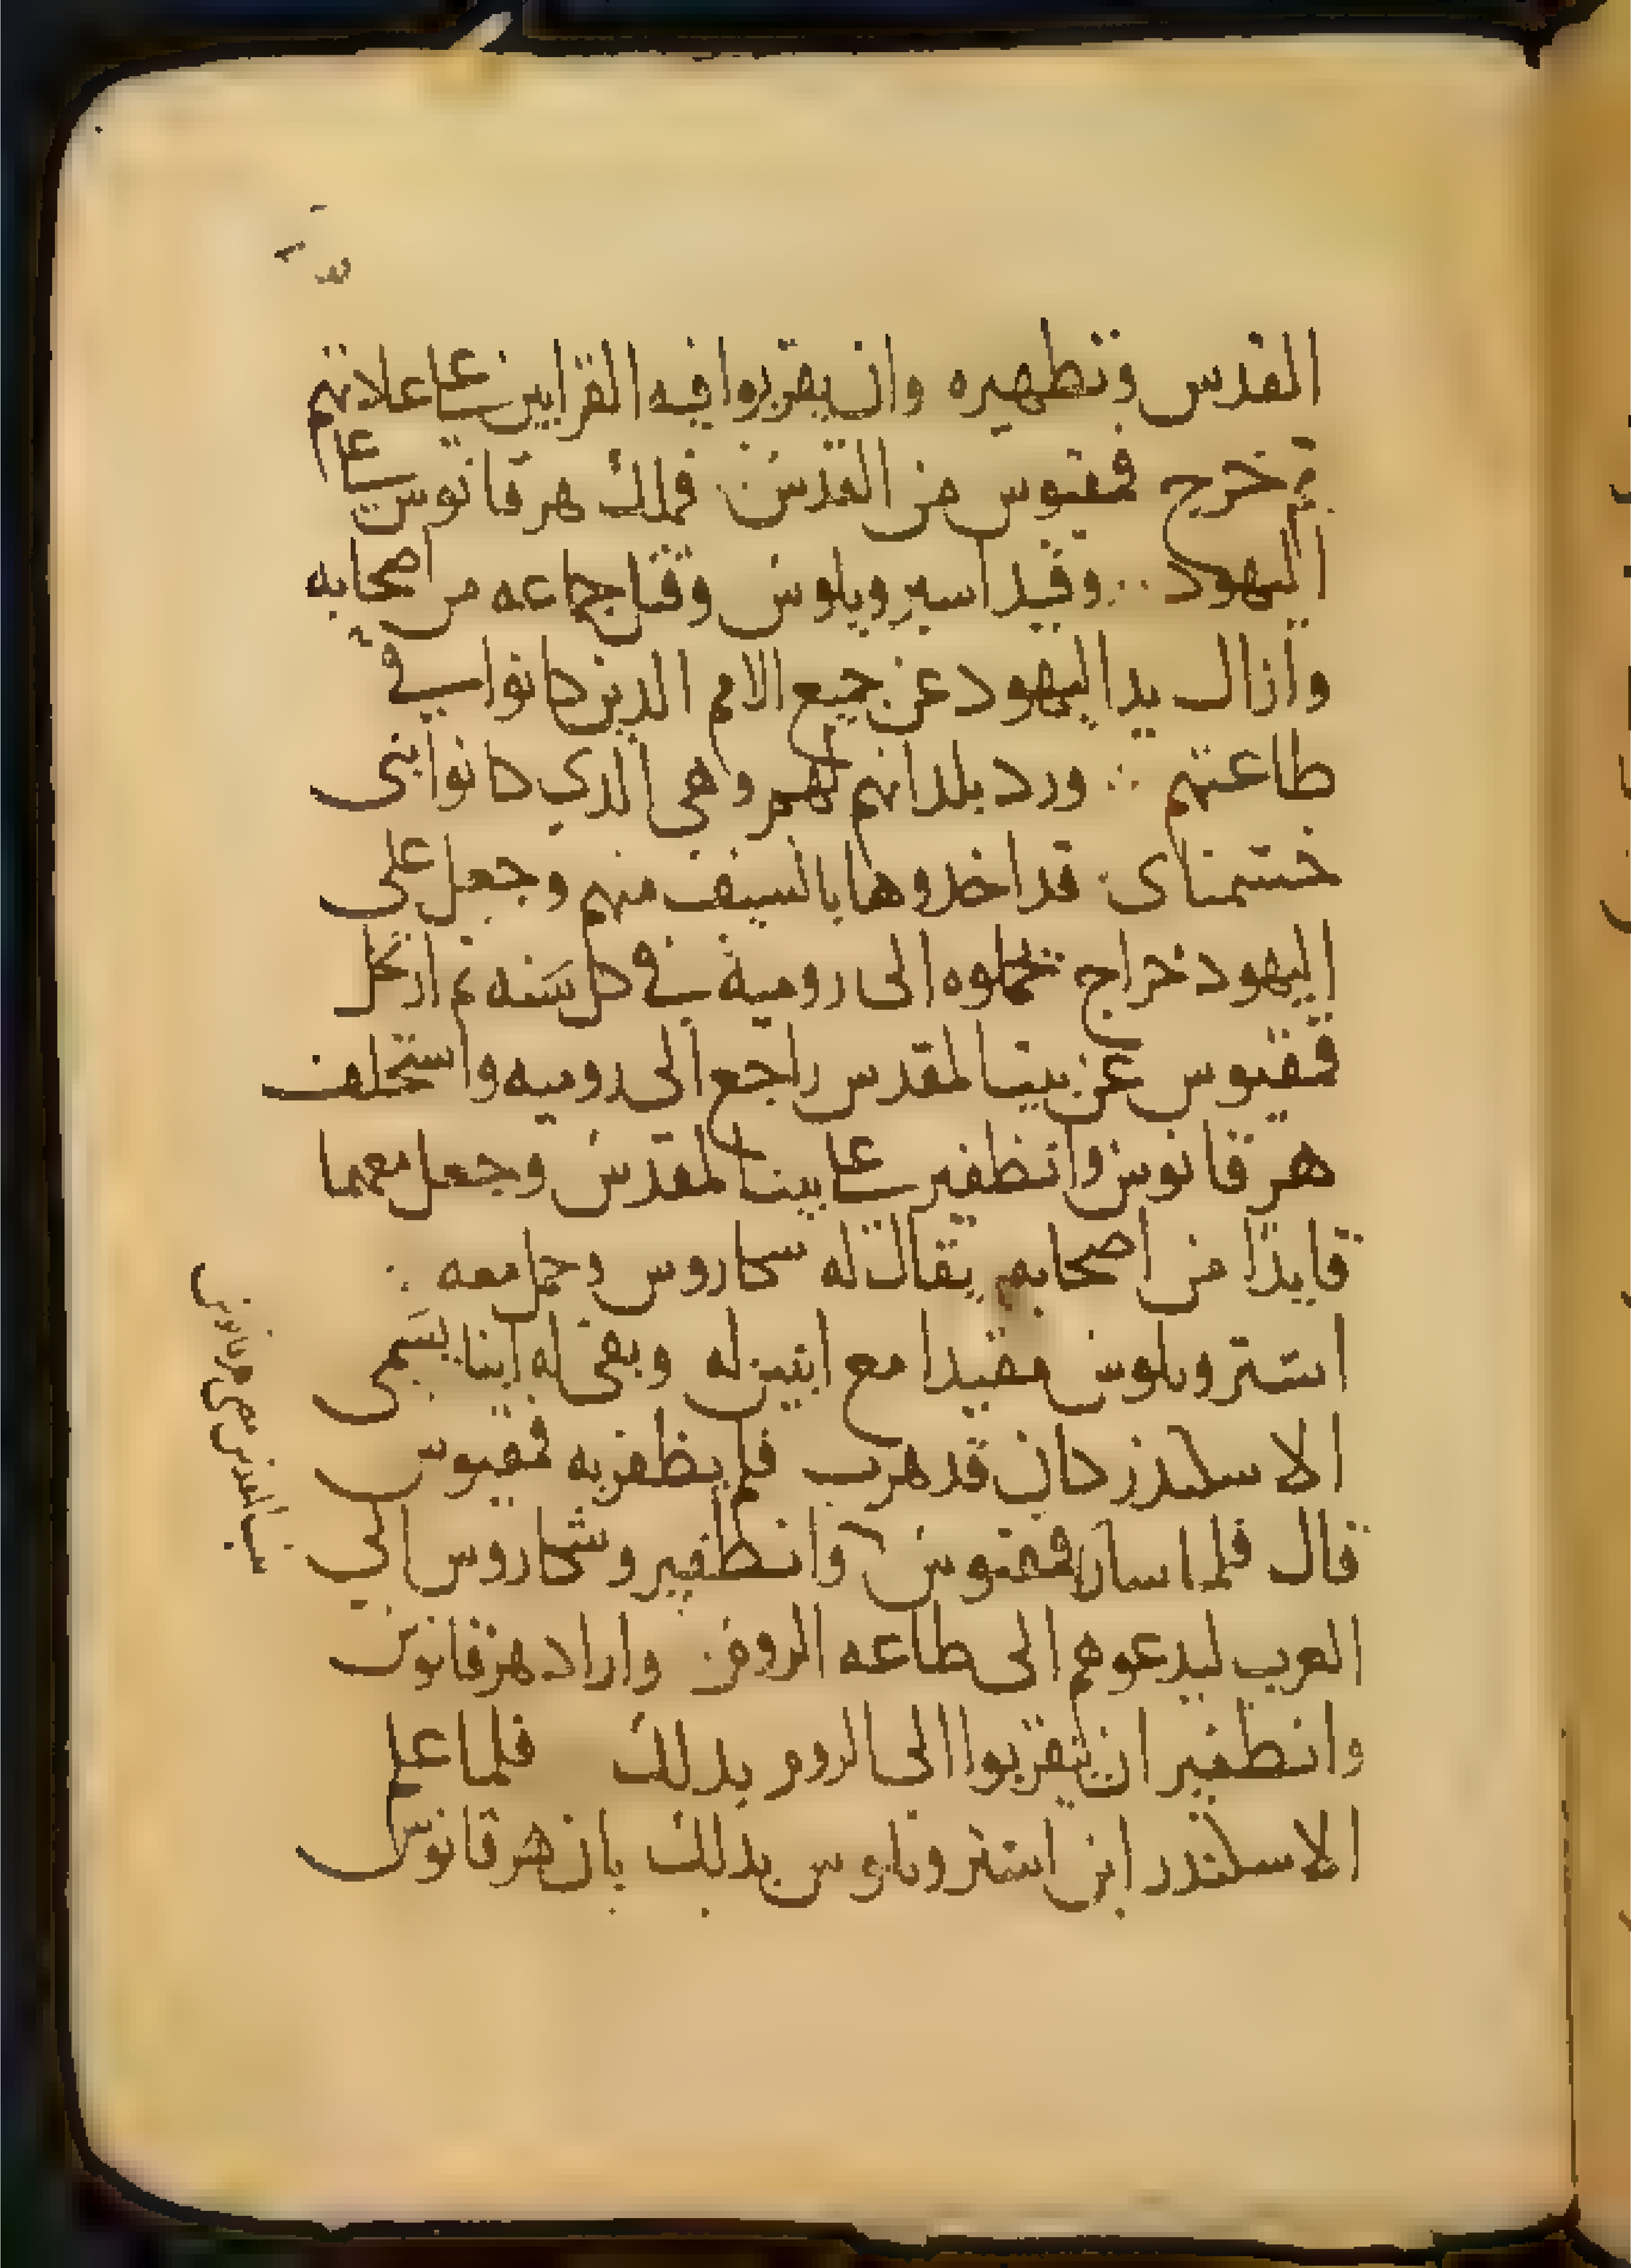 القدس وتطهيره وان يقربوا فيه القرابين على عادتهم
ثم خرج فمقيوس من القدس فملك هرقانوس على
اليهود وقيد استروبلوس وقتل جماعه من اصحابه
وازال يد اليهود عن جميع الامم الدين كانوا في
طاعتهم ورد بلدانهم لهم وهي الدي كانوا بني
خشمناي قد اخدوها بالسيف منهم وجعل على
اليهود خراج يحملوه الى رومية في كل سنه ثم ارتحل
فمقيوس عن بيت المقدس راجع الى روميه واستخلف
هرقانوس وانطفير على بيت المقدس وجعل معهما
قايدا من اصحابه يقال له سكاروس وحمل معه
استروبلوس مقيدا مع ابنين له وبقي له ابنا يسمى
الاسكندر كان قد هرب فلم يظفر به فمقيوس
قال فلما سار فمقيوس وانطفير وشكاروس الي
العرب ليدعوهم الى طاعه الروم واراد هرقانوس
وانطفير ان يتقربوا الى الروم بدلك فلما علم
الاسكندر ابن استروبلوس بدلك بان هرقانوس